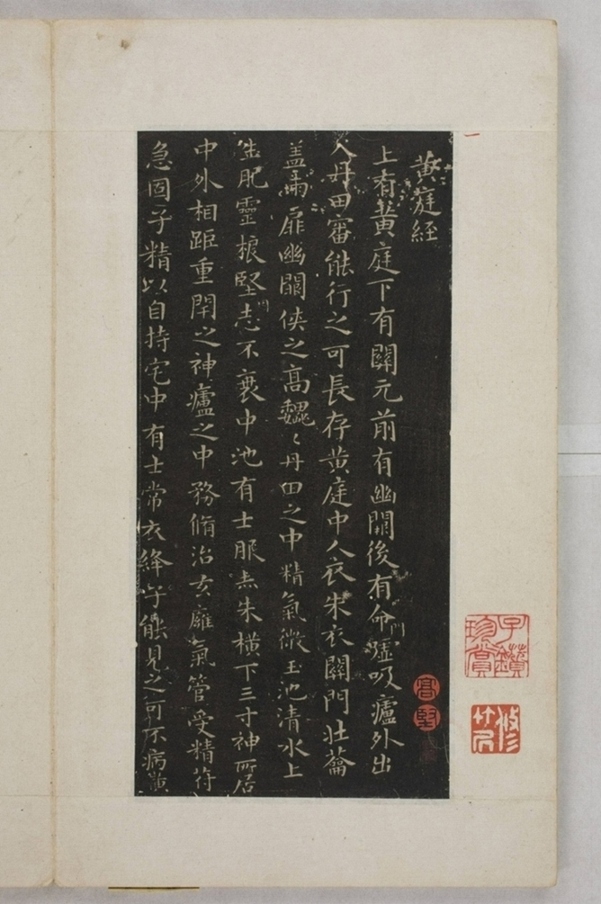 黃庭經
上有黃庭下有關元前有幽闕後有命門噓吸廬外出
入丹田審能行之可長存黃庭中人衣朱衣關門壯蘥
蓋兩扉幽闕俠之高魏〻丹田之中精氣微玉池清水上
生肥靈根堅志不衰中池有士服赤朱橫下三寸神所居
中外相距重閇之神廬之中務脩治玄廱氣管受精苻
急固子精以自持宅中有士常衣絳子能見之可不病黃
子鑽
珍賞
高
堅